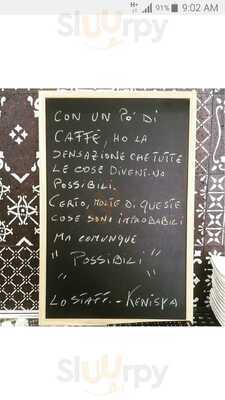 Slurrrp
H+ 91% 9:02 AM
CON UN PO' DI
CAFFÈ, HO LA
SENSAZIONE CHE TUTTE
LE COSE DIVENTINO
POSSIBILI.
CERTO, MOLTE DI QUESTE
COSE SONO IMPROBABILI
MA COMUNQUE
" POSSIBILI "
" "
LO STAFF. - KENISYA
Slurrrp